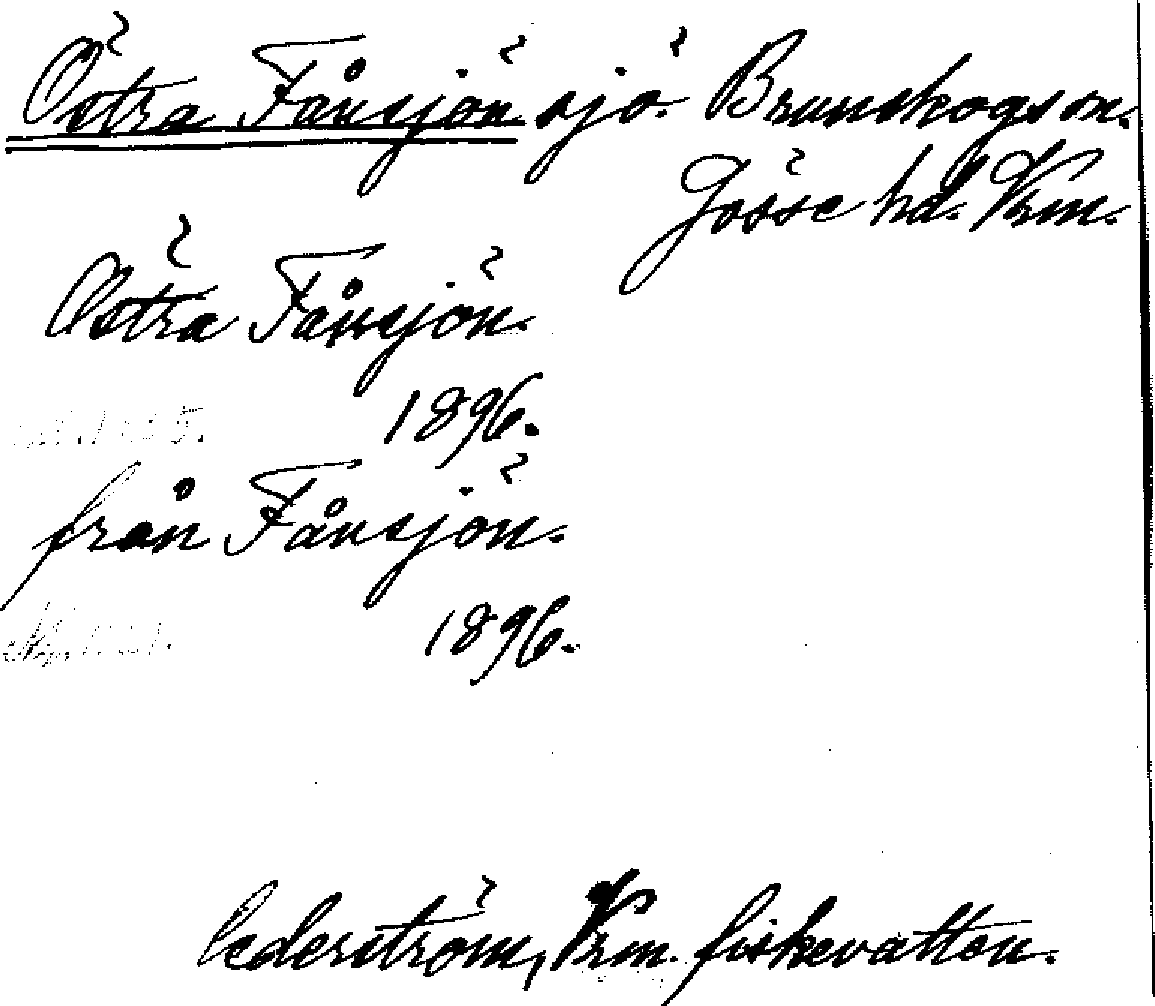 Östra Fånsjön sjö. Brunskogs sn.
Gösse hd. Vrm.
Östra Fånsjön.
1896.
från Fånsjön.
1896.
Cederström, Vrm. fiskevatten.